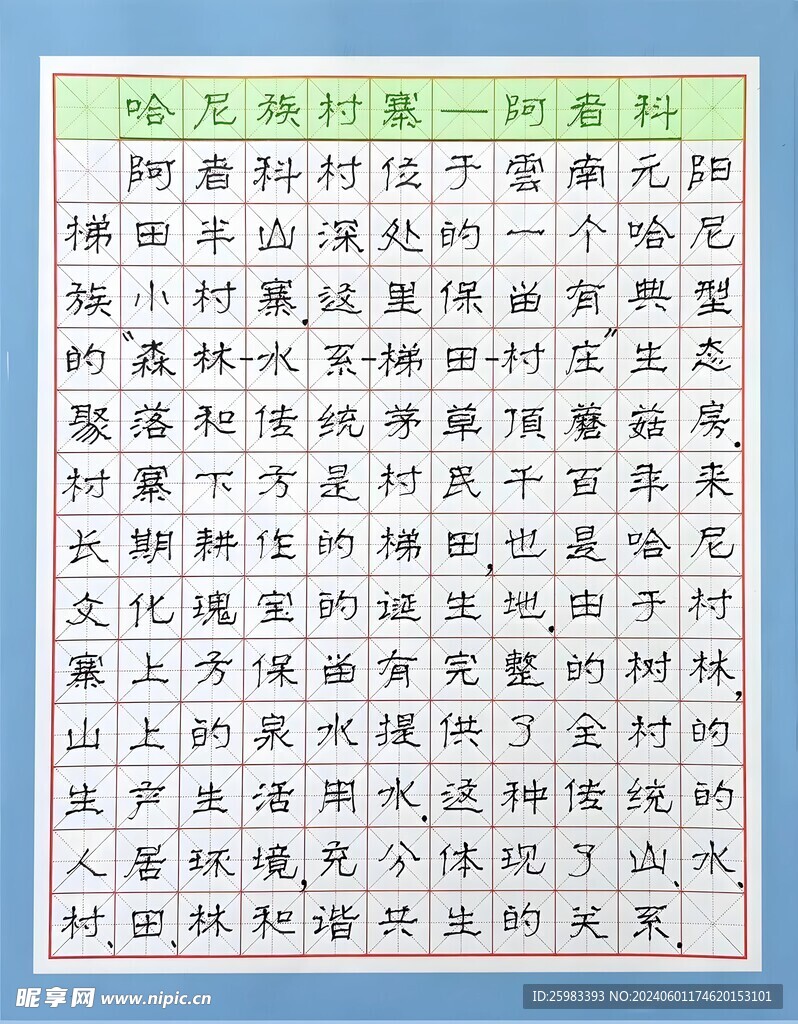 哈尼族村寨—阿者科
阿者科村位于雲南元阳
梯田半山深处的一个哈尼
族小村寨.这里保留有典型
的“森林-水系-梯田-村庄”生态
聚落和传统茅草頂蘑菇房.
村寨下方是村民千百年来
长期耕作的梯田,也是哈尼
文化瑰宝的诞生地.由于村
寨上方保留有完整的树林,
山上的泉水提供了全村的
生产生活用水.这种传统的
人居环境,充分体现了山、水、
村、田、林和谐共生的关系.
昵享网 www.nipic.cn
ID:25983393 NO:20240601174620153101